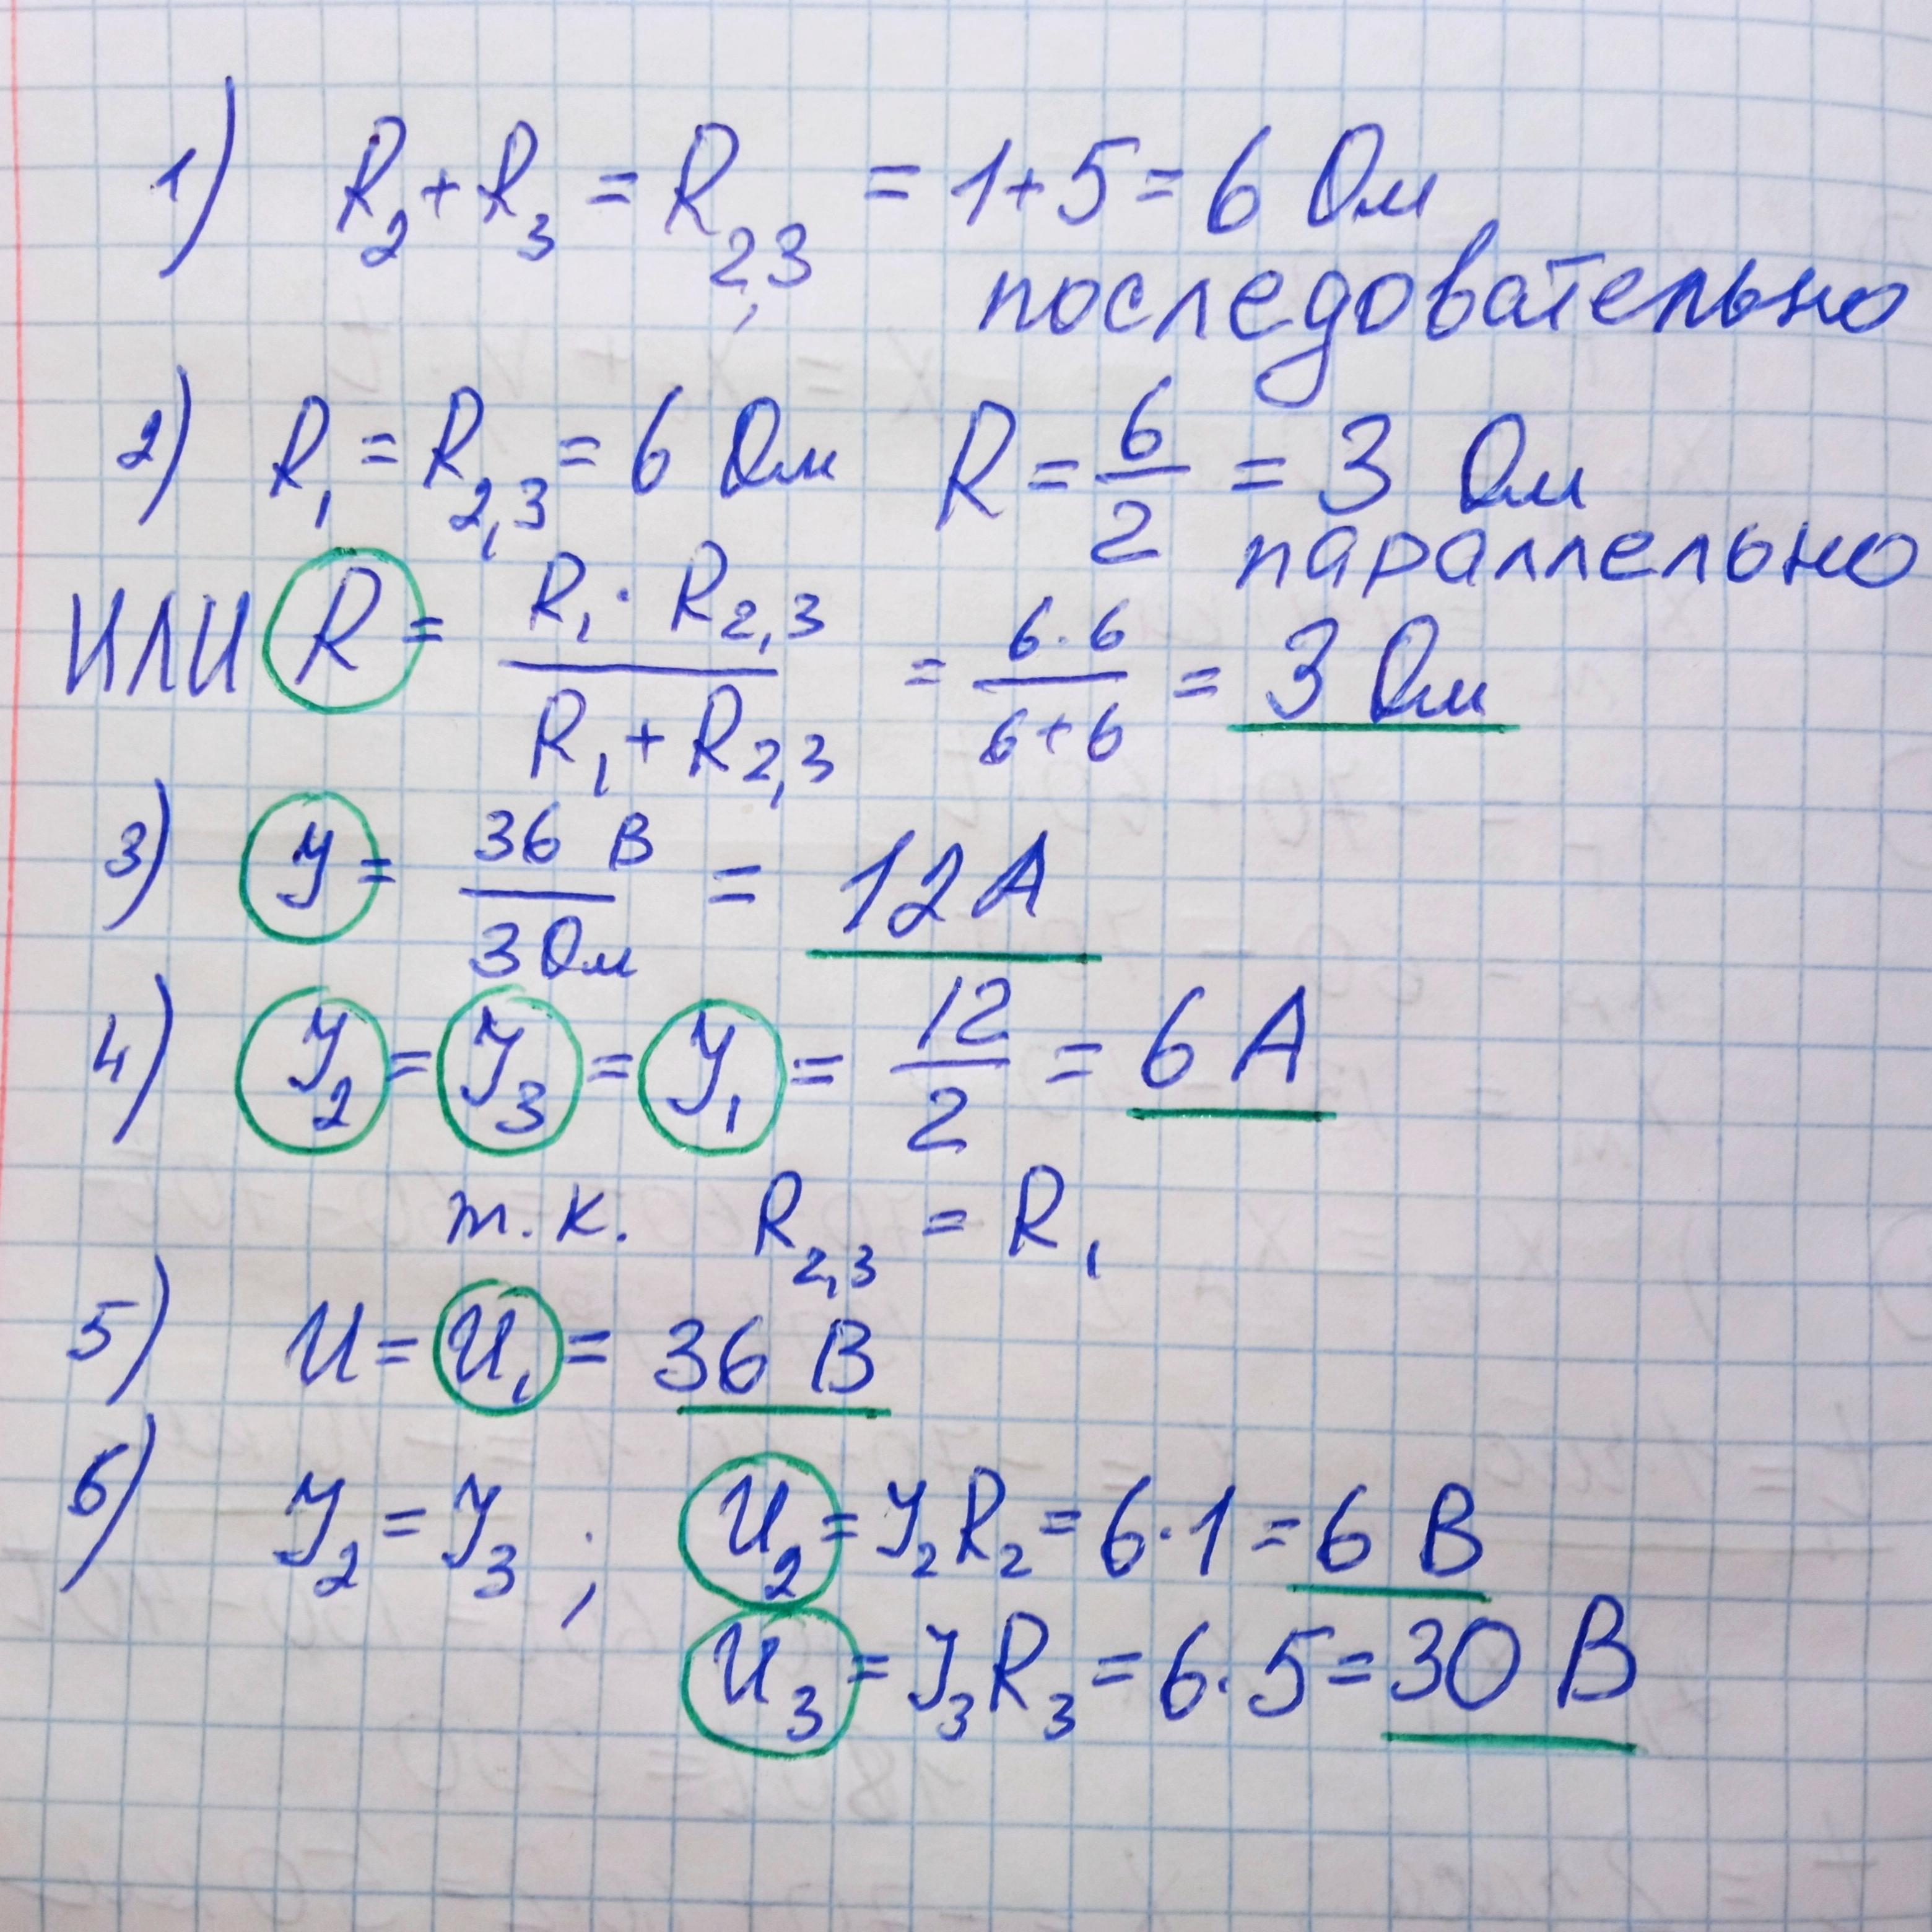 1) R₂ + R₃ = R₂,₃ = 1+5 = 6 Ом
последовательно
2) R₁ = R₂,₃ = 6 Ом R = 6/2 = 3 Ом
параллельно
ИЛИ R = R₁·R₂,₃ / R₁+R₂,₃ = 6·6 / 6+6 = 3 Ом
3) У = 36 В / 3 Ом = 12 А
4) У₂ = У₃ = У₁ = 12/2 = 6 А
т.к. R₂,₃ = R₁
5) U = U₁ = 36 В
6) У₂ = У₃ ; U₂ = У₂R₂ = 6·1 = 6 В
U₃ = У₃R₃ = 6·5 = 30 В